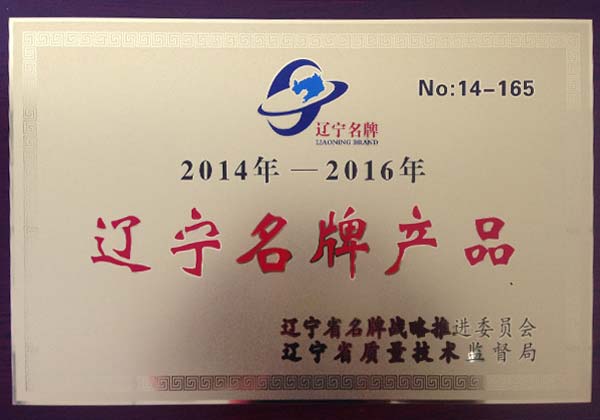 No:14-165
辽宁名牌
LIAONING BRAND
2014年—2016年
辽宁名牌产品
辽宁省名牌战略推进委员会
辽宁省质量技术监督局